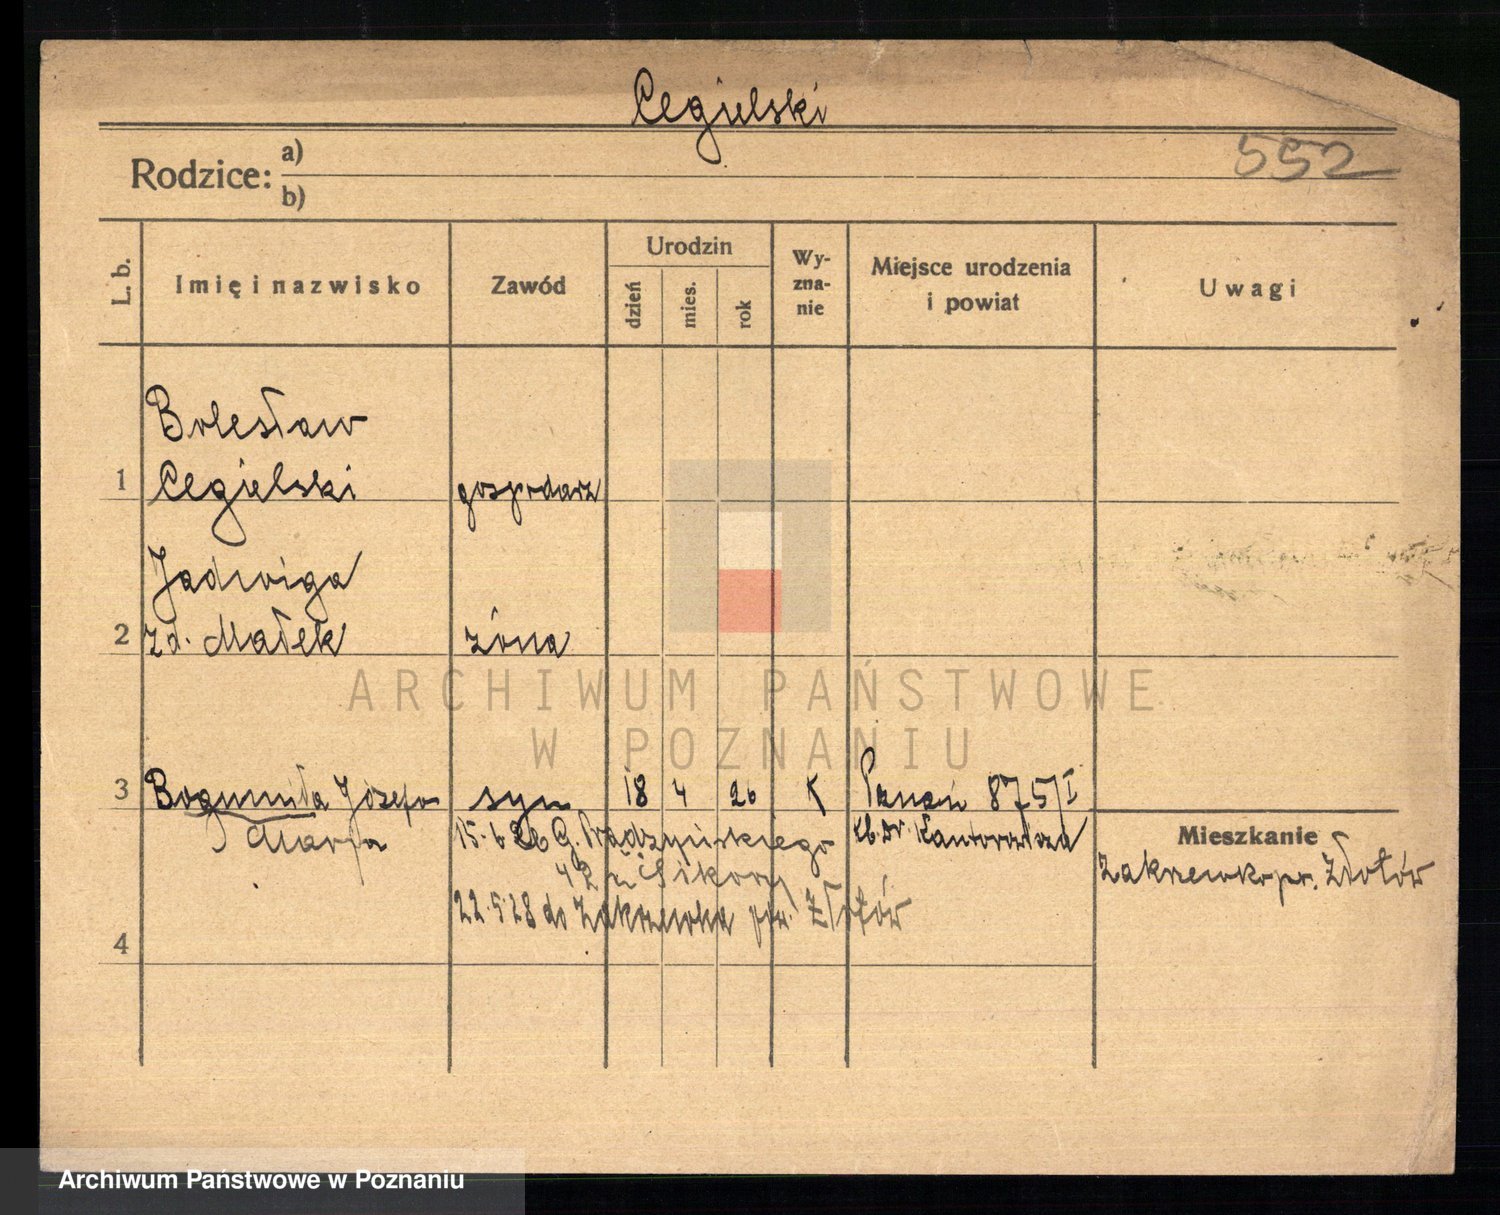 Cegielski
552
Rodzice: a)
b)
L. b.
Imię i nazwisko
Zawód
Urodzin
dzień
mies.
rok
Wy-
zna-
nie
Miejsce urodzenia
i powiat
Uwagi
Bolesław
1 Cegielski gospodarz
Jadwiga
2 zd. Małek żona
ARCHIWUM PAŃSTWOWE
W POZNANIU
3 Bogumiła Józefa syn 18 4 26 K Poznań 875/I
Marja
15.6.26 G. Prądzyńskiego
42 Sikory
22.5.28 do Zakrzewka pow. Złotów
Mieszkanie
Zakrzewko pow. Złotów
4
Archiwum Państwowe w Poznaniu